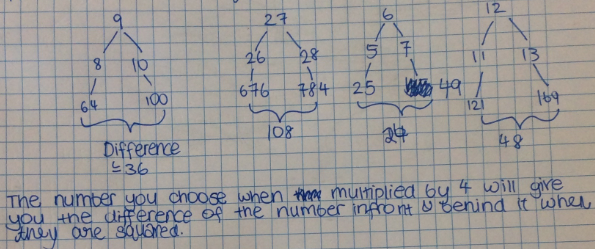 9 27 6 12
8 10 26 28 5 7 11 13
64 100 676 784 25 49 121 169
Difference 108 24 48
= 36
The number you choose when multiplied by 4 will give
you the difference of the number infront & behind it when
they are squared.